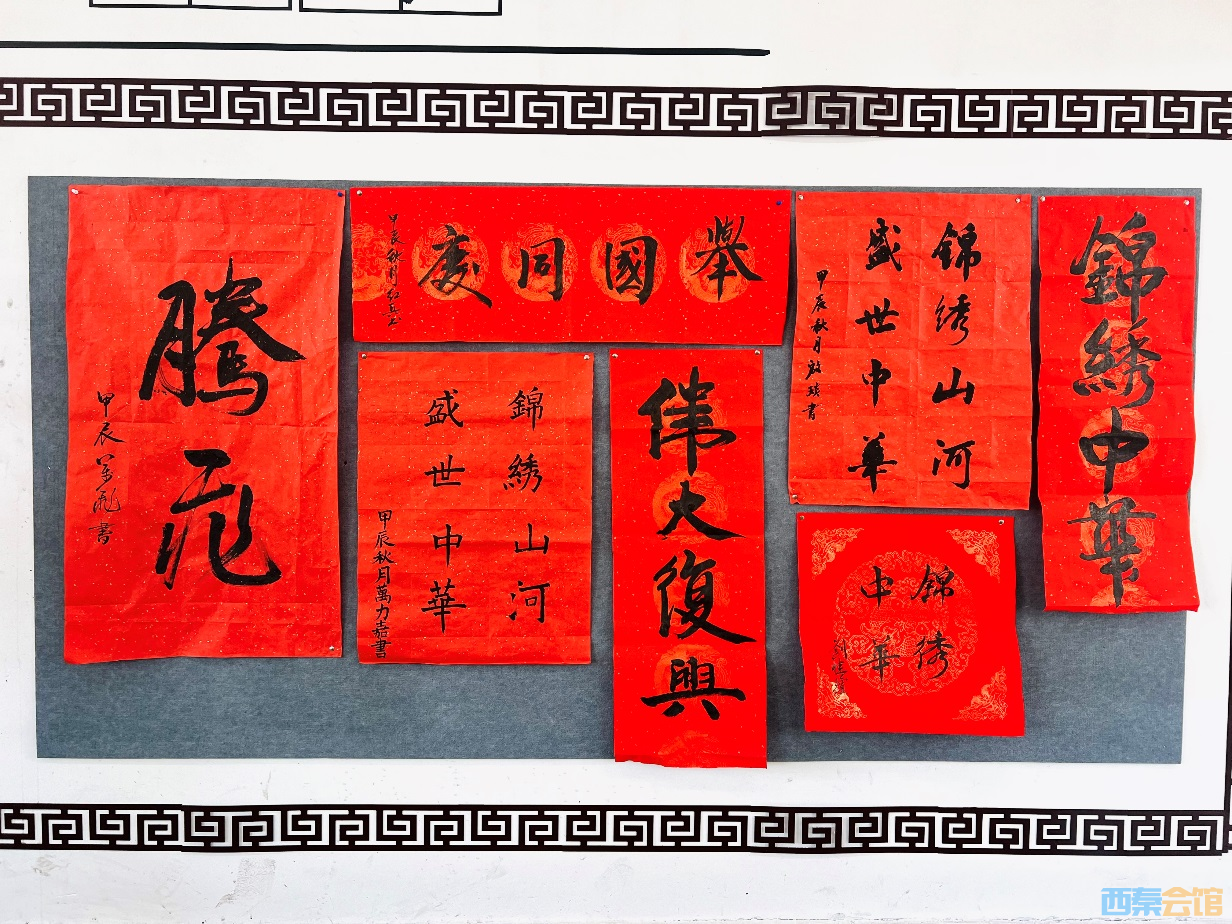 騰飛
甲辰 書
舉國同慶
甲辰秋月
錦綉山河
盛世中華
甲辰秋月萬力嘉書
偉大復興
錦綉山河
盛世中華
甲辰秋月 書
錦綉
中華
錦綉中華
西秦会馆